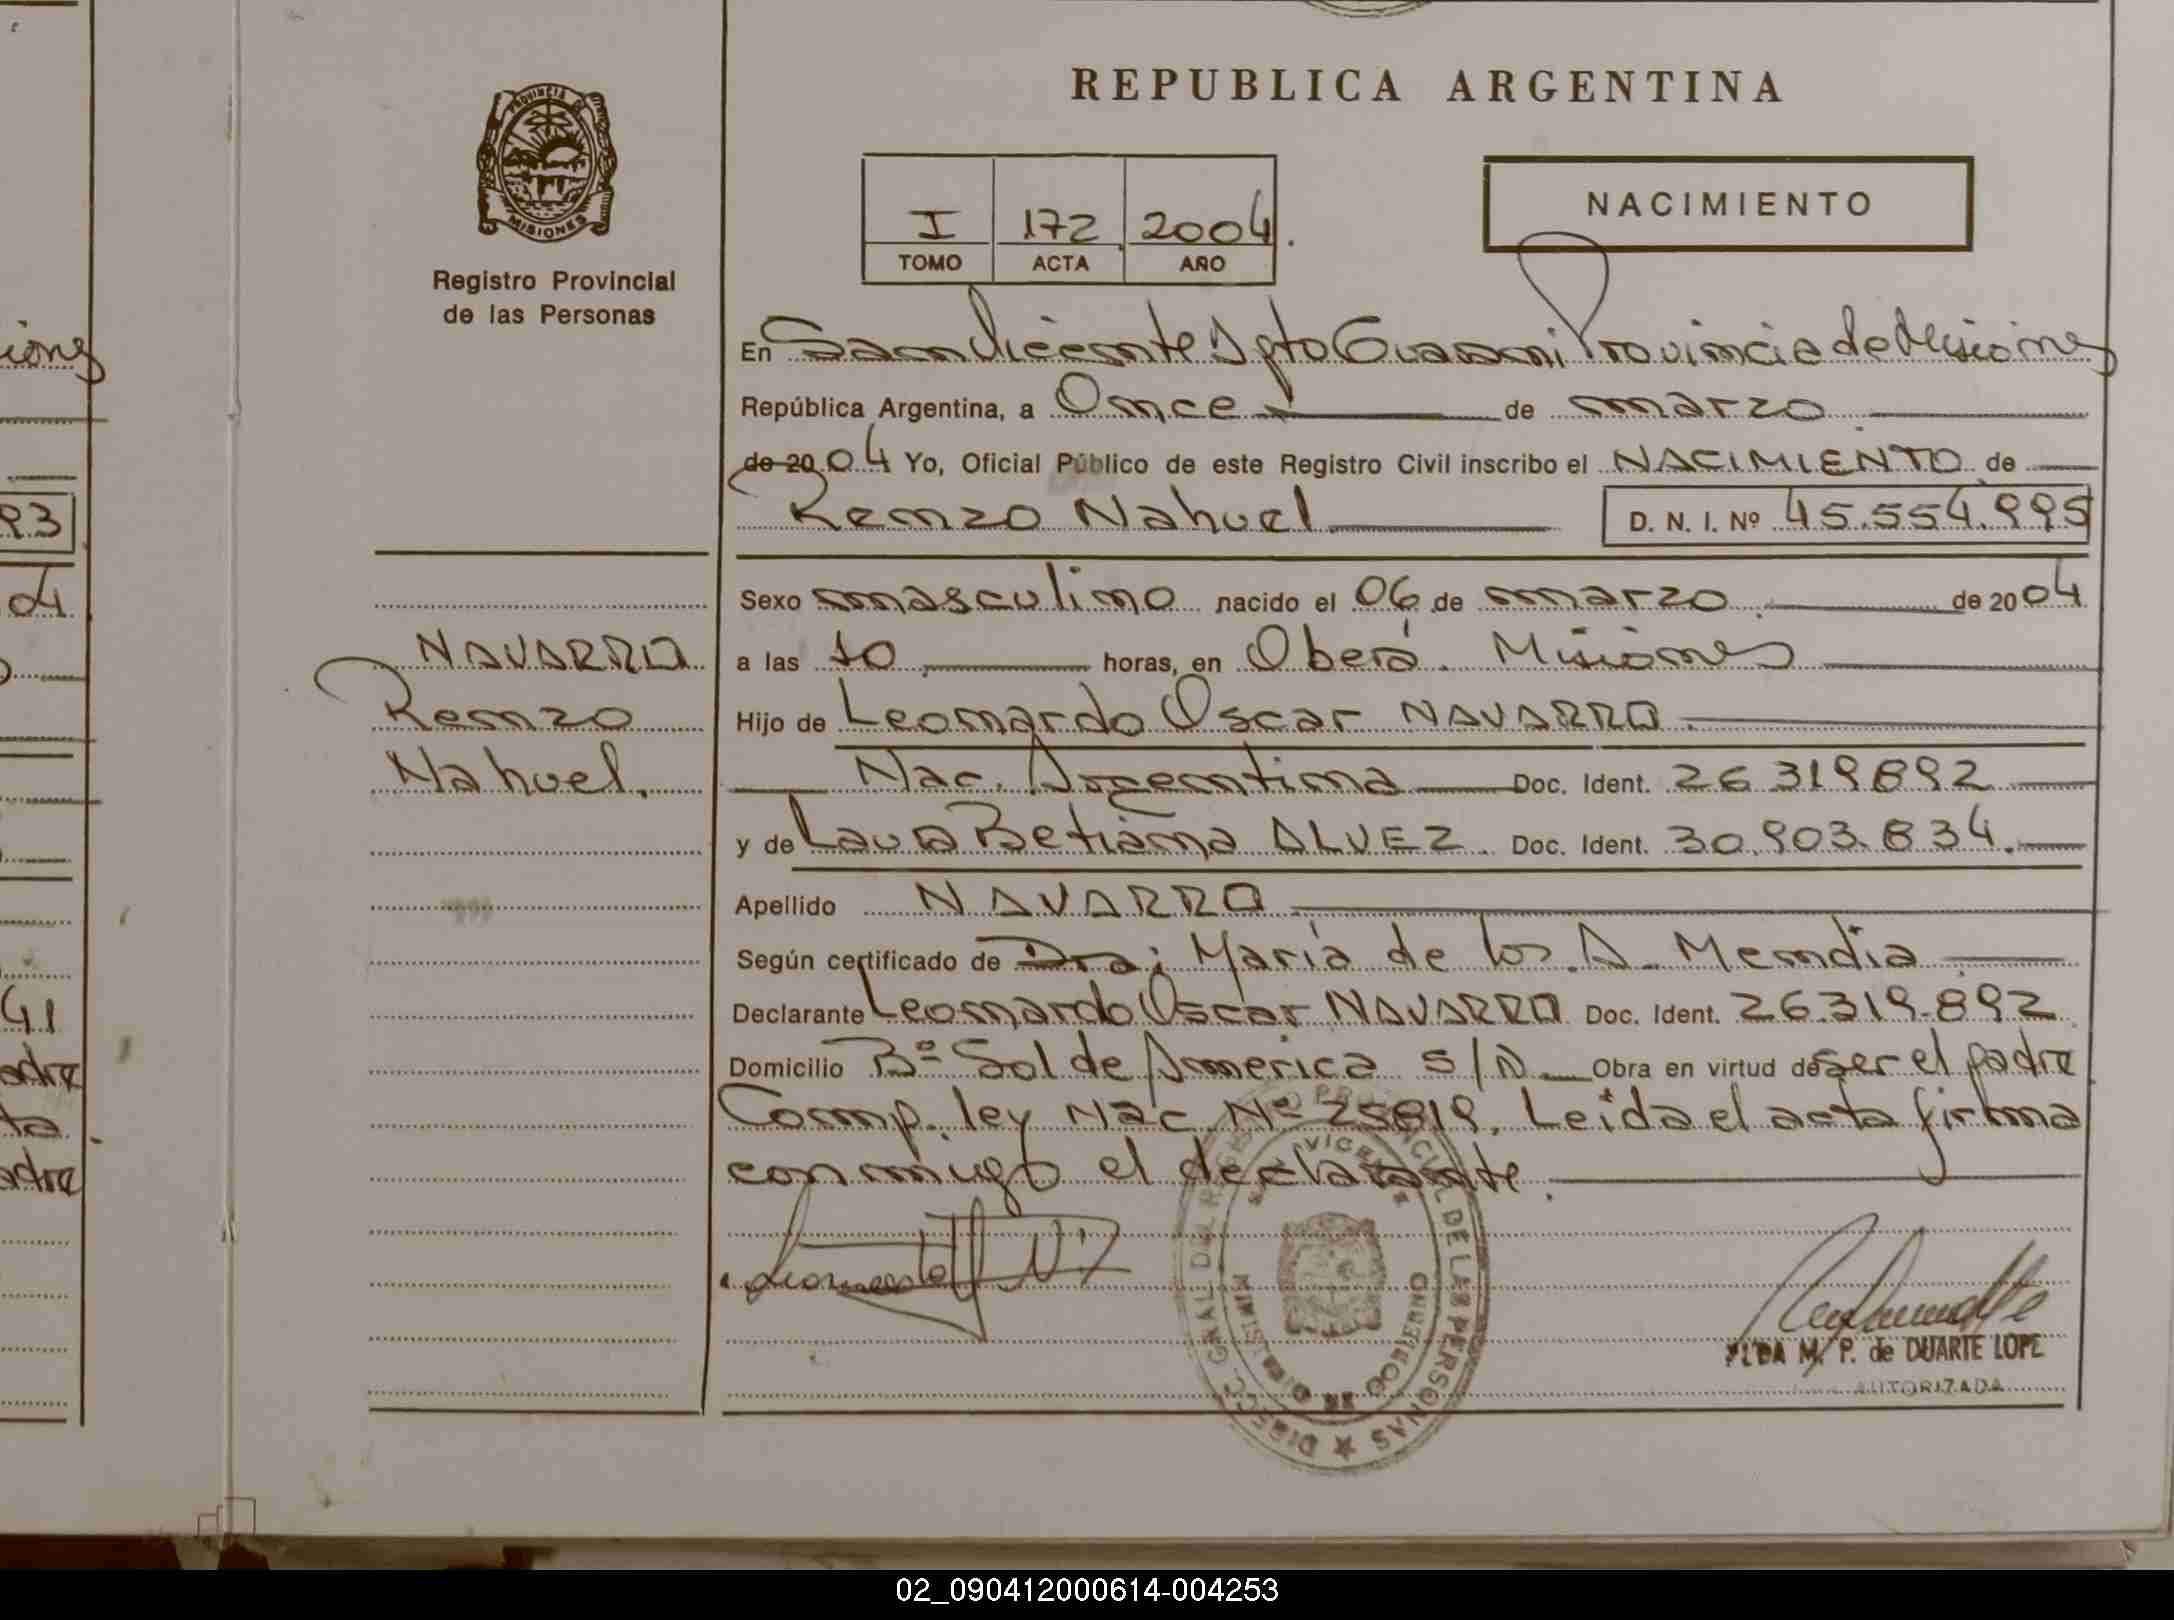 REPUBLICA ARGENTINA
PROVINCIA DE
MISIONES
Registro Provincial
de las Personas
I 172 2004.
TOMO ACTA AÑO
NACIMIENTO
En San Vicente Dpto Guaraní Provincia de Misiones
República Argentina, a Once de marzo
de 20 04 Yo, Oficial Público de este Registro Civil inscribo el NACIMIENTO de
Renzo Nahuel D. N. I. Nº 45.554.995
Sexo masculino nacido el 06 de marzo de 20 04
NAVARRO
a las 10 horas, en Oberá. Misiones
Renzo
Hijo de Leonardo Oscar NAVARRO
Nahuel.
Nac. Argentina Doc. Ident. 26.319.892
y de Laura Betiana ALVEZ. Doc. Ident. 30.903.834.
Apellido NAVARRO
Según certificado de Dra; María de los A. Mendia
Declarante Leonardo Oscar NAVARRO Doc. Ident. 26.319.892
Domicilio Bº Sol de America S/N Obra en virtud de ser el padre
Comp. ley Nac. Nº 25819. Leida el acta firma
conmigo el declarante.
DIRECC. GRAL. DEL REGISTRO PROVINCIAL DE LAS PERSONAS
MINISTERIO DE GOBIERNO
M. P. de DUARTE LOPE
AUTORIZADA
ions
93
04
41
adre
ta
adre
02_090412000614-004253